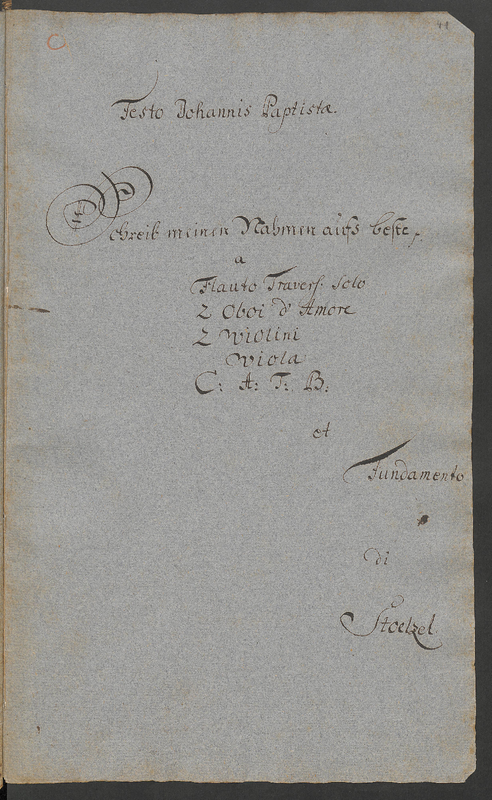 41
Festo Johannis Baptistæ.
Schreib meinen Nahmen aufs beste,
a
Flauto Travers. Solo
2 Oboi d'Amore
2 Violini
Viola
C: A: T: B:
et
Fundamento
di
Stoelzel